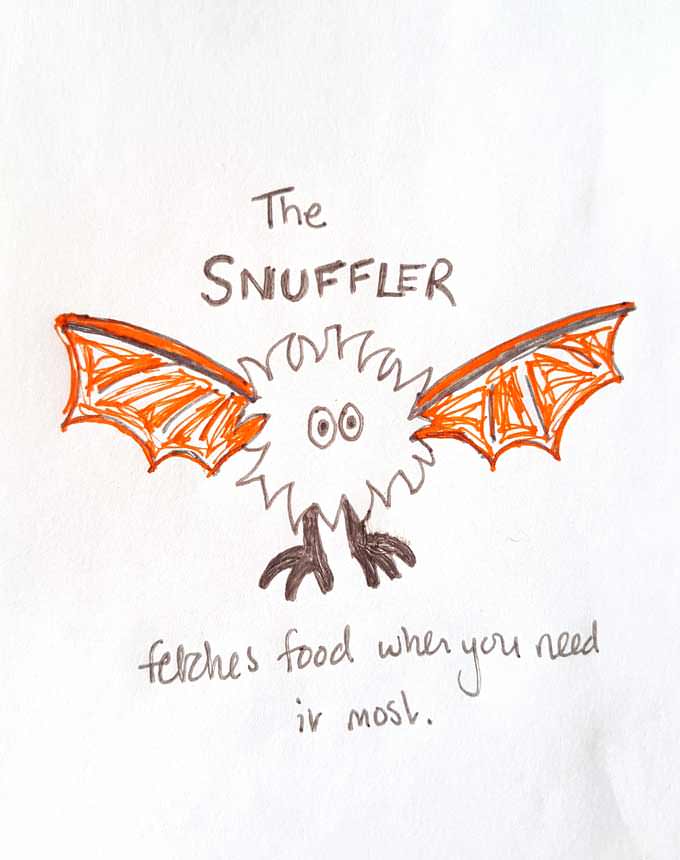 The
SNUFFLER
fetches food when you need
it most.